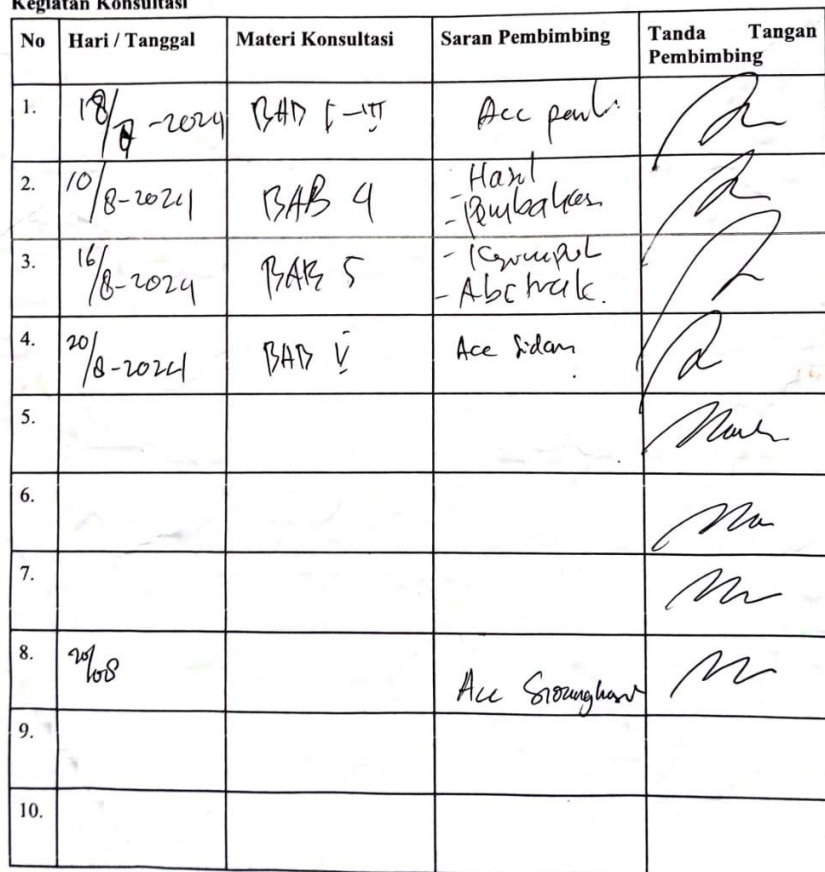 Kegiatan Konsultasi
No Hari / Tanggal Materi Konsultasi Saran Pembimbing Tanda Tangan
Pembimbing
1. 18/ -2024 BAB I-III Acc
2. 10/8-2024 BAB 4 - Hasil
- Pembahas
3. 16/8-2024 BAB 5 -
- Abstrak.
4. 20/8-2024 BAB V Acc Sidang
5.
6.
7.
8. 20/08 Acc
9.
10.